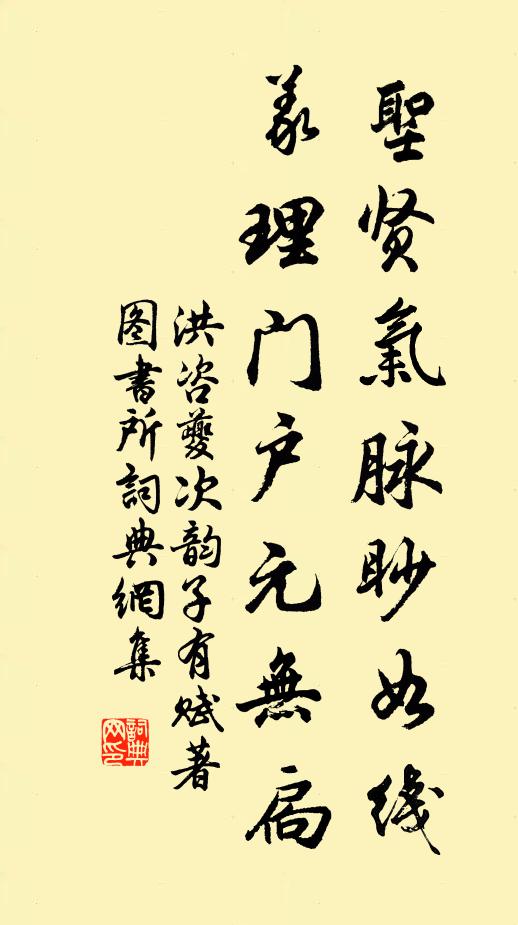 聖贤氣脉眇如线
義理門户元無扃
洪咨夔次韵子有赋著
图書所詞典網集
詞典网印